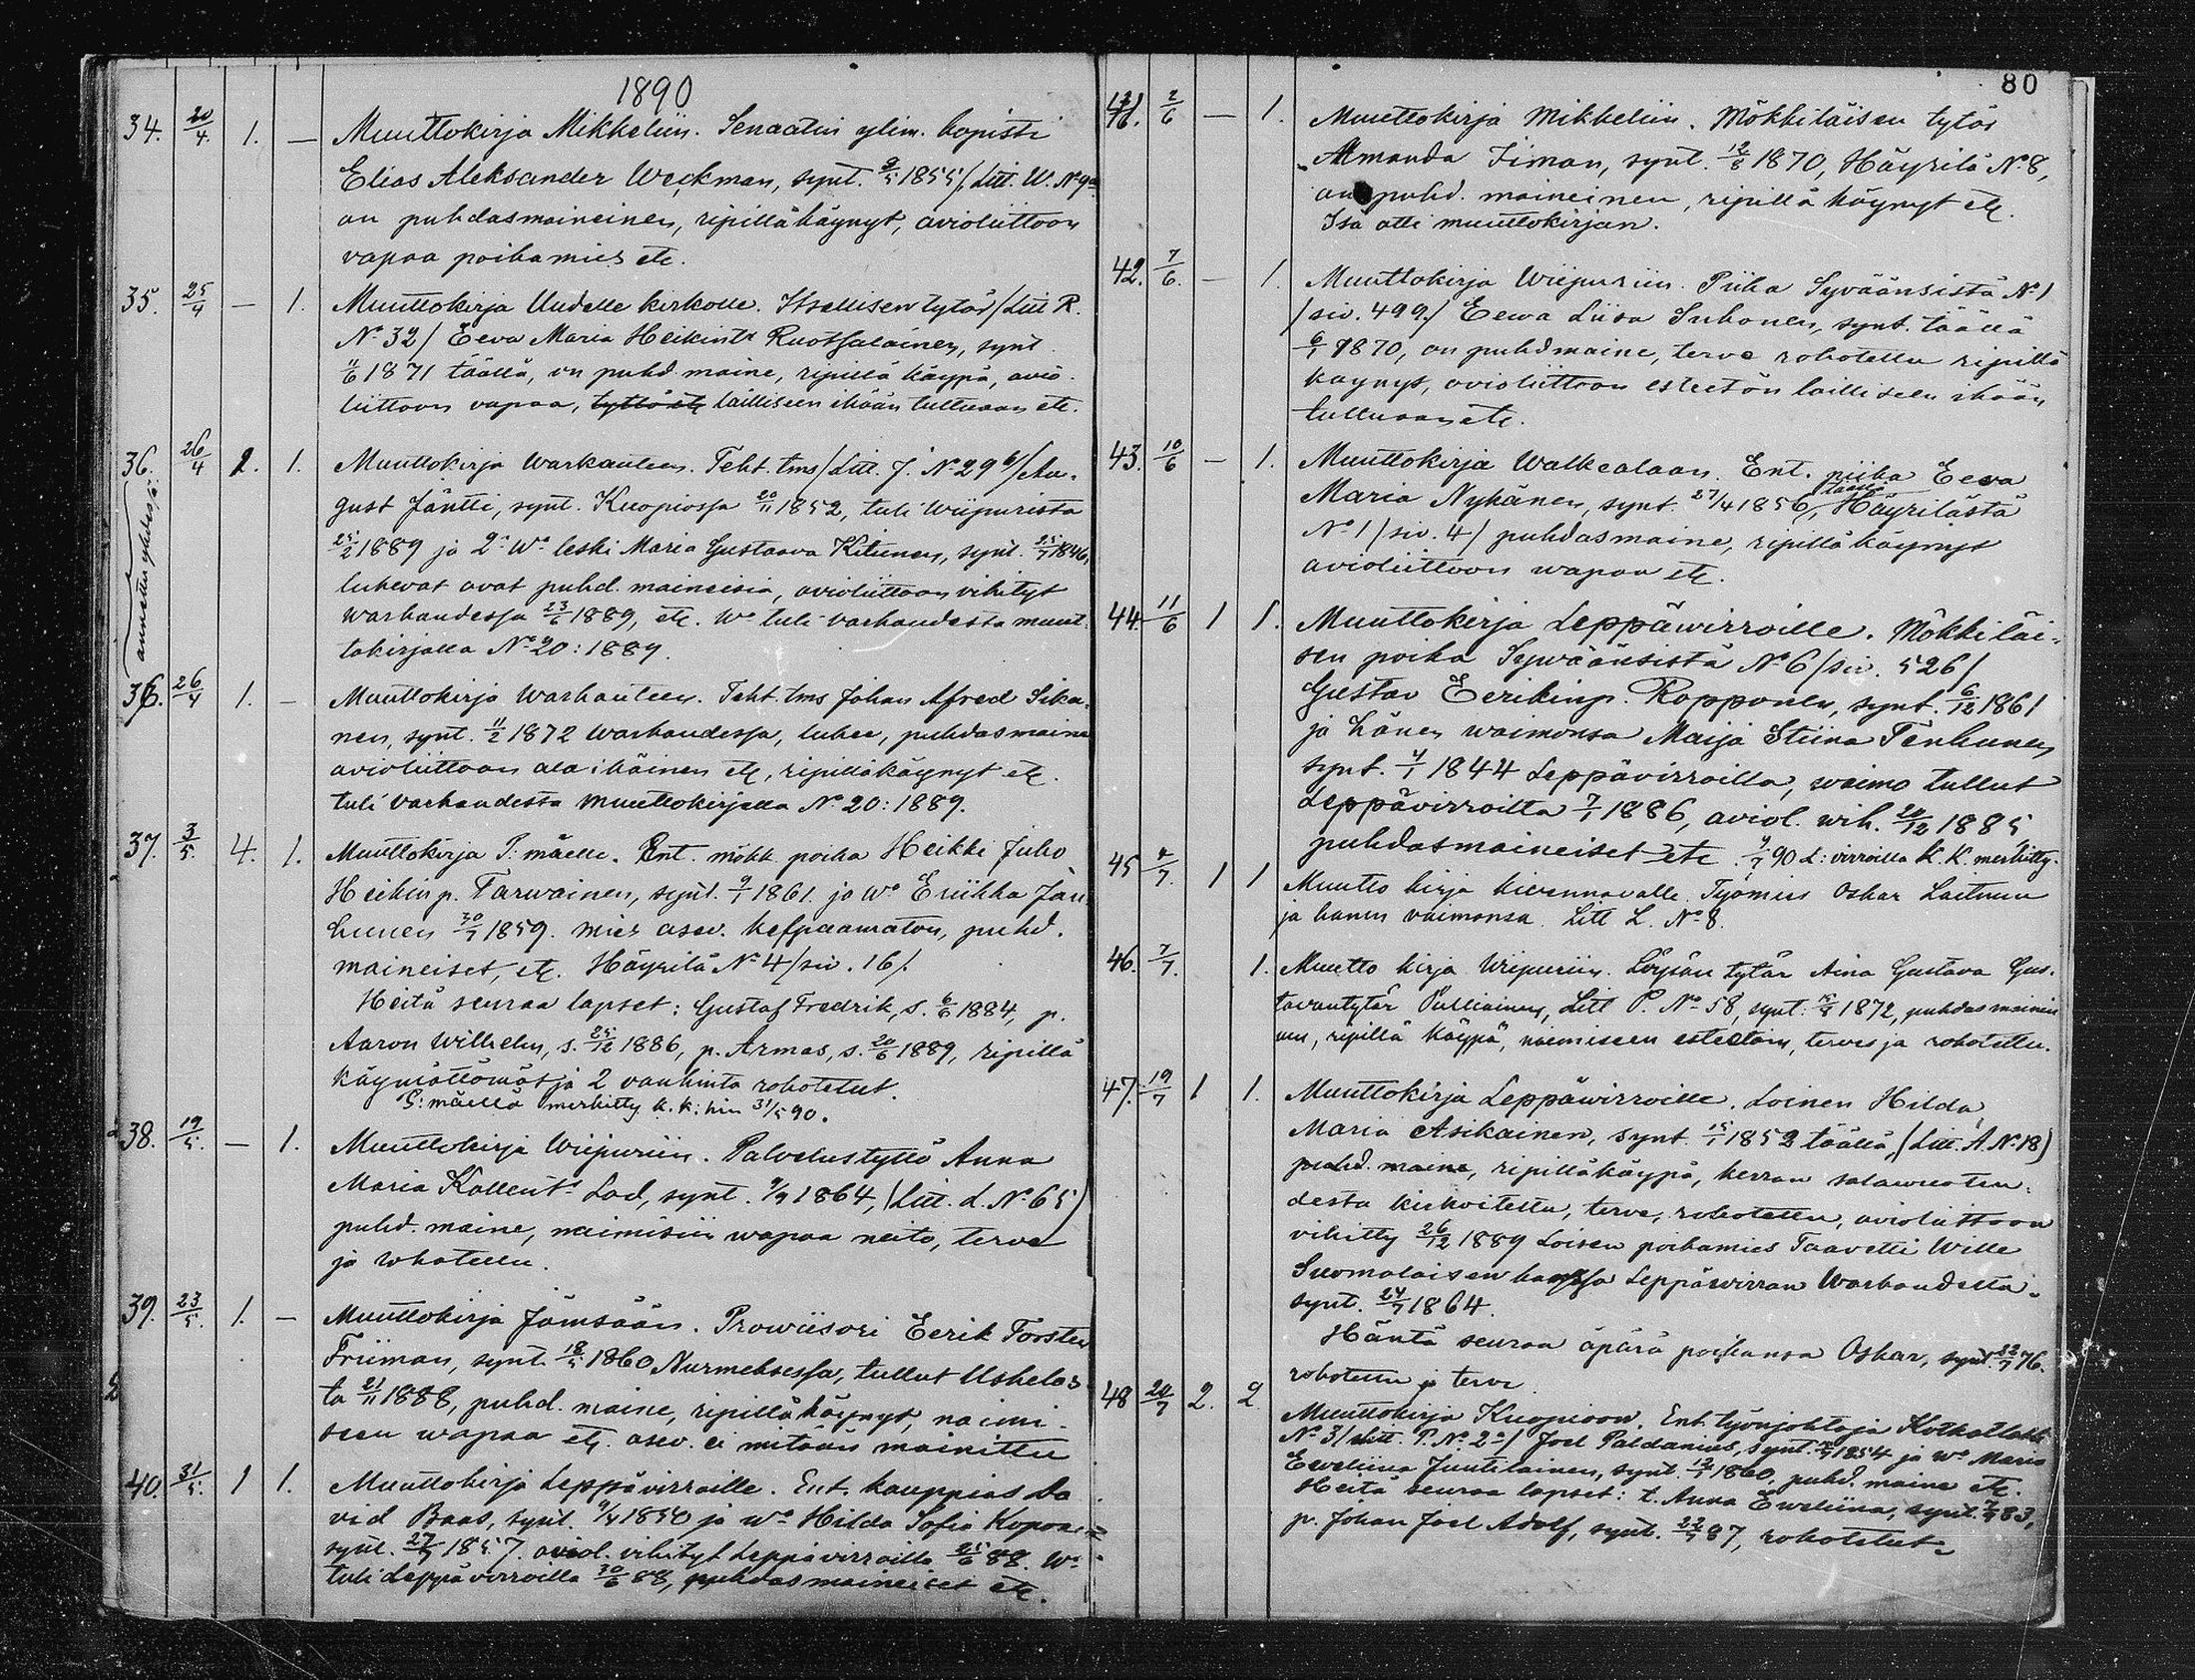 1890
34. 20/4. 1. — Muuttokirja Mikkeliin. Senaatin ylim. kopisti
Elias Aleksander Weckman, synt. 9/5 1855 /Litt. W. No 9a
on puhdasmaineinen, ripillä käynyt, avioliittoon
vapaa poikamies etc.
35. 25/4 — 1. Muuttokirja Uudelle kirkolle. Itsellisen tytär /Litt R.
No 32/ Eeva Maria Heikintr Ruotsalainen, synt.
11/6 1871 täällä, on puhd. maine, ripillä käypä, avio-
liittoon vapaa, tyttö etc lailliseen ikään tulluaan etc.
36. 26/4 2. 1. Muuttokirja Warkauteen. Teht. tms /Litt. J. No 29 b/ Au-
gust Jäntti, synt. Kuopiossa 20/11 1852, tuli Wiipurista
25/2 1889 ja 2: Wo leski Maria Gustaava Kitunen, synt. 25/7 1846,
lukevat ovat puhd. maineisia, avioliittoon vihityt
Warkaudessa 23/6 1889, etc. Wo tuli Varkaudesta muut-
tokirjalla No 20: 1889.
annettu yhdessä.
36. 26/4 1. — Muuttokirja Warkauteen. Teht. tms Johan Alfred Sika-
nen, synt. 11/2 1872 Warkaudessa, lukee, puhdasmaine
avioliittoon ala-ikäinen etc, ripillä käynyt etc.
tuli Varkaudesta muuttokirjalla No 20: 1889.
37. 3/5. 4. 1. Muuttokirja P: mäelle. Ent. mökk. poika Heikki Juho
Heikinp. Tarwainen, synt. 9/1 1861 ja Wo Eriikka Jän
hunen 30/7 1859. mies asev. kelpaamaton, puhd.
maineiset, etc. Häyrilä No 4 /siv. 16/.
Heitä seuraa lapset: Gustaf Fredrik, s. 6/6 1884, p.
Aaron Wilhelm, s. 25/12 1886, p. Armas, s. 20/6 1889, ripillä
käymättömät ja 2 vanhinta rokotetut.
P: mäellä merkitty k.k: hin 31/5 90.
38. 19/5. — 1. Muuttokirja Wiipuriin. Palvelustyttö Anna
Maria Kallentr Lad, synt. 9/9 1864, /Litt. L. No 65/
puhd. maine, naimisiin wapaa neito, terve
ja rokotettu.
39. 23/5. 1. — Muuttokirja Jämsään. Prowiisori Eerik Torsten
Friiman, synt. 18/5 1860 Nurmeksessa, tullut Uskelas-
ta 21/11 1888, puhd. maine, ripillä käynyt, naimi-
seen wapaa etc. asev. ei mitään mainittu
40. 31/5. 1 1. Muuttokirja Leppävirroille. Ent. kauppias Da
vid Baas, synt. 9/4 1850 ja wo Hilda Sofia Kopo
synt. 27/7 1857. aviol. vihityt Leppävirroilla 25/6 88. Wo
tuli Leppävirroilla 30/6 88, puhdasmaineiset etc.
80
41. 2/6 — 1. Muuttokirja Mikkeliin. Mökkiläisen tytär
Amanda Iiman, synt. 12/8 1870, Häyrilä No 8,
on puhd. maineinen, ripillä käynyt etc.
Isä otti muuttokirjan.
42. 7/6. — 1. Muuttokirja Wiipuriin. Piika Syväänsistä No 1
/siv. 499./ Eewa Liisa Suhonen, synt. täällä
6/1 1870, on puhdmaine, terve rokotettu ripillä
käynyt, avioliittoon esteetön lailliseen ikään
tulluaan etc.
43. 10/6 — 1. Muuttokirja Walkealaan. Ent. piika Eeva
Maria Nykänen, synt. 27/4 1856 täällä, Häyrilästä
No 1 /siv. 4/ puhdasmaine, ripillä käynyt
avioliittoon wapaa etc.
44. 11/6 1 1. Muuttokirja Leppäwirroille. Mökkiläi-
sen poika Sywäänsistä No 6 /siv. 526/
Gustav Eerikinp. Ropponen, synt. 6/12 1861
ja hänen waimonsa Maija Stiina Tenhunen
synt. 4/1 1844 Leppävirroilla, waimo tullut
Leppävirroilta 7/1 1886, aviol. wih. 20/12 1885
puhdasmaineiset etc. 9/7 90 L: virroilla k.K. merkitty.
45 4/7. 1 1 Muutto kirja kierinnavalle Työmies Oskar Laitinen
ja hänen vaimonsa. Litt L. No 8.
46. 7/7. 1. Muutto kirja Wiipuriin. Loisen tytär Aina Gustava Gus-
tavantytär Pulliainen, Litt P. No 58, synt: 15/8 1872, puhdasmainei
nen, ripillä käypä, naimiseen esteetöin, terves ja rokotettu.
47. 19/7 1 1. Muuttokirja Leppäwirroille. Loinen Hilda
Maria Asikainen, synt. 15/1 1852 täällä, (Litt. A. No 18)
puhd. maine, ripilläkäypä, kerran salawuoteu-
desta kirkoitettu, terve, rokotettu, avioliittoon
vihitty 26/12 1889 Loisen poikamies Taavetti Wille
Suomalaisen kanssa Leppäwirran Warkaudelta
synt. 24/7 1864.
Häntä seuraa äpärä poikansa Oskar, synt. 22/7 76.
rokotettu ja terve.
48 20/7 2. 2. Muuttokirja Kuopioon. Ent. työnjohtaja Kotkatlahti
No 3/ Litt. P. No 2a/ Joel Paldanius, synt. 1854 ja wo Maria
Eweliina Juntilainen, synt. 12/1 1860, puhd. maine etc.
Heitä seuraa lapset: t. Anna Eweliina, synt. 83,
p. Johan Joel Adolf, synt. 22/7 87, rokotetut